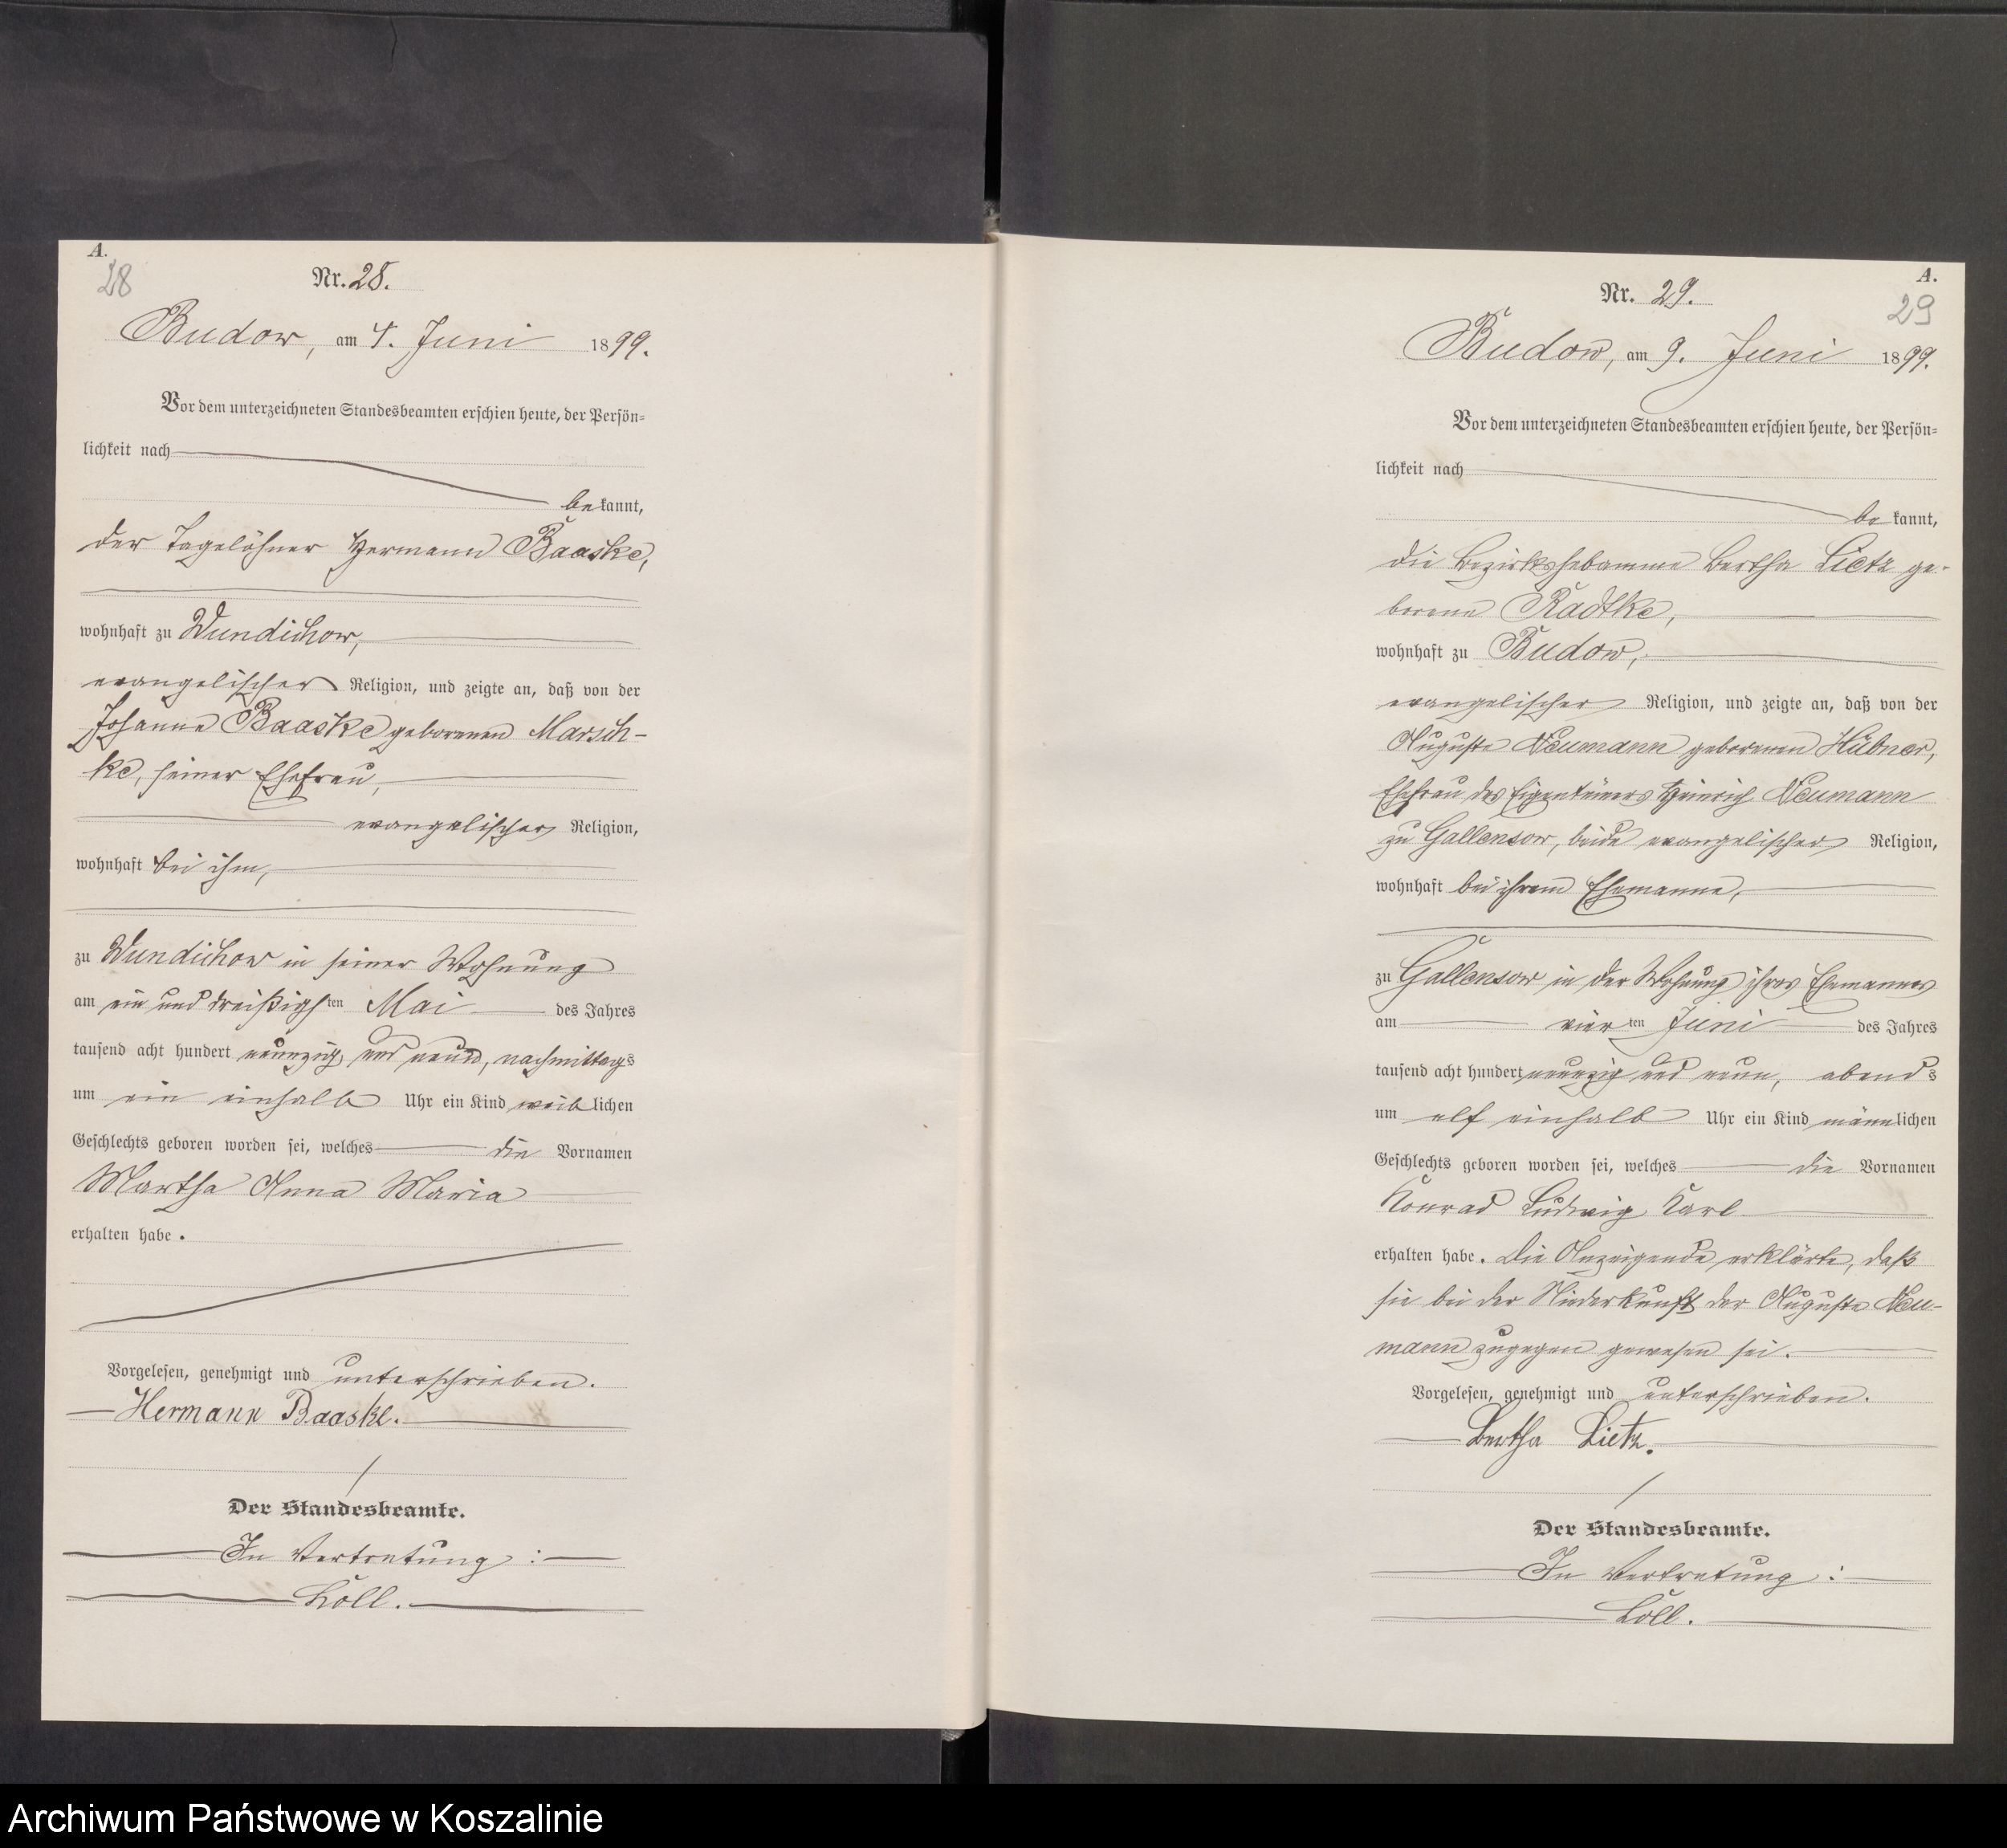 A.
28
Nr. 28.
Budow, am 4. Juni 1899.
Vor dem unterzeichneten Standesbeamten erschien heute, der Persön-
lichkeit nach
bekannt,
der Tagelöhner Hermann Baaske,
wohnhaft zu Wundichow,
evangelischer Religion, und zeigte an, daß von der
Johanne Baaske geborenen Marsch-
ke, seiner Ehefrau,
evangelischer Religion,
wohnhaft bei ihm,
zu Wundichow in seiner Wohnung
am ein und dreißigsten Mai des Jahres
tausend acht hundert neunzig und neun, nachmittags
um ein einhalb Uhr ein Kind weiblichen
Geschlechts geboren worden sei, welches die Vornamen
Martha Anna Maria
erhalten habe.
Vorgelesen, genehmigt und unterschrieben.
Hermann Baaske.
Der Standesbeamte.
In Vertretung:
Löll.
A.
29
Nr. 29.
Budow, am 9. Juni 1899.
Vor dem unterzeichneten Standesbeamten erschien heute, der Persön-
lichkeit nach
bekannt,
die Bezirkshebamme Bertha Lietz ge-
borene Radtke,
wohnhaft zu Budow,
evangelischer Religion, und zeigte an, daß von der
Auguste Neumann geborenen Hübner,
Ehefrau des Eigentümers Heinrich Neumann
zu Gallensow, beide evangelischer Religion,
wohnhaft bei ihrem Ehemanne,
zu Gallensow in der Wohnung ihres Ehemannes
am vierten Juni des Jahres
tausend acht hundert neunzig und neun, abends
um elf einhalb Uhr ein Kind männlichen
Geschlechts geboren worden sei, welches die Vornamen
Konrad Ludwig Karl
erhalten habe. Die Anzeigende erklärte, daß
sie bei der Niederkunft der Auguste Neu-
mann zugegen gewesen sei.
Vorgelesen, genehmigt und unterschrieben.
Bertha Lietz.
Der Standesbeamte.
In Vertretung:
Löll.
Archiwum Państwowe w Koszalinie